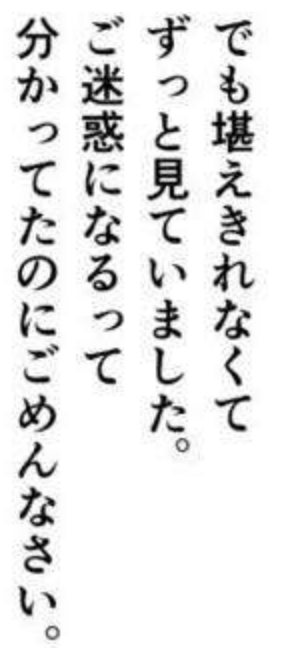 でも堪えきれなくて
ずっと見ていました。
ご迷惑になるって
分かってたのにごめんなさい。